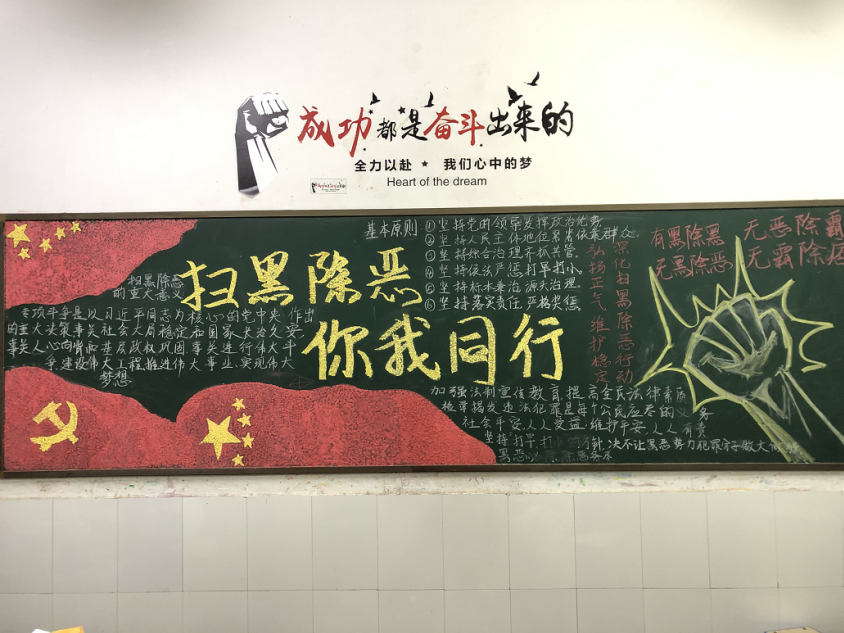 成功都是奋斗出来的
全力以赴 ★ 我们心中的梦
Heart of the dream
扫黑除恶
你我同行
扫黑除恶
的重大意义
专项斗争是以习近平同志为核心的党中央 作出
的重大决策事关社会大局稳定和国家长治久安,
事关人心向背和基层政权巩固,事关进行伟大斗
争,建设伟大工程,推进伟大事业,实现伟大
梦想
基本原则
①坚持党的领导发挥政治优势
②坚持人民主体地位紧紧依靠群众
③坚持综合治理齐抓共管.
④坚持依法严惩打早打小.
⑤坚持标本兼治源头治理.
⑥坚持落实责任,严格奖惩.
深化扫黑除恶行动
弘扬正气 维护稳定
有黑除黑 无恶除霸
无黑除恶 无霸除痞
加强法制宣传教育,提高全民法律素质
检举揭发违法犯罪是每个公民应尽的义务
社会平安人人受益,维护平安人人有责
坚持打早打小的方针,决不让黑恶势力犯罪